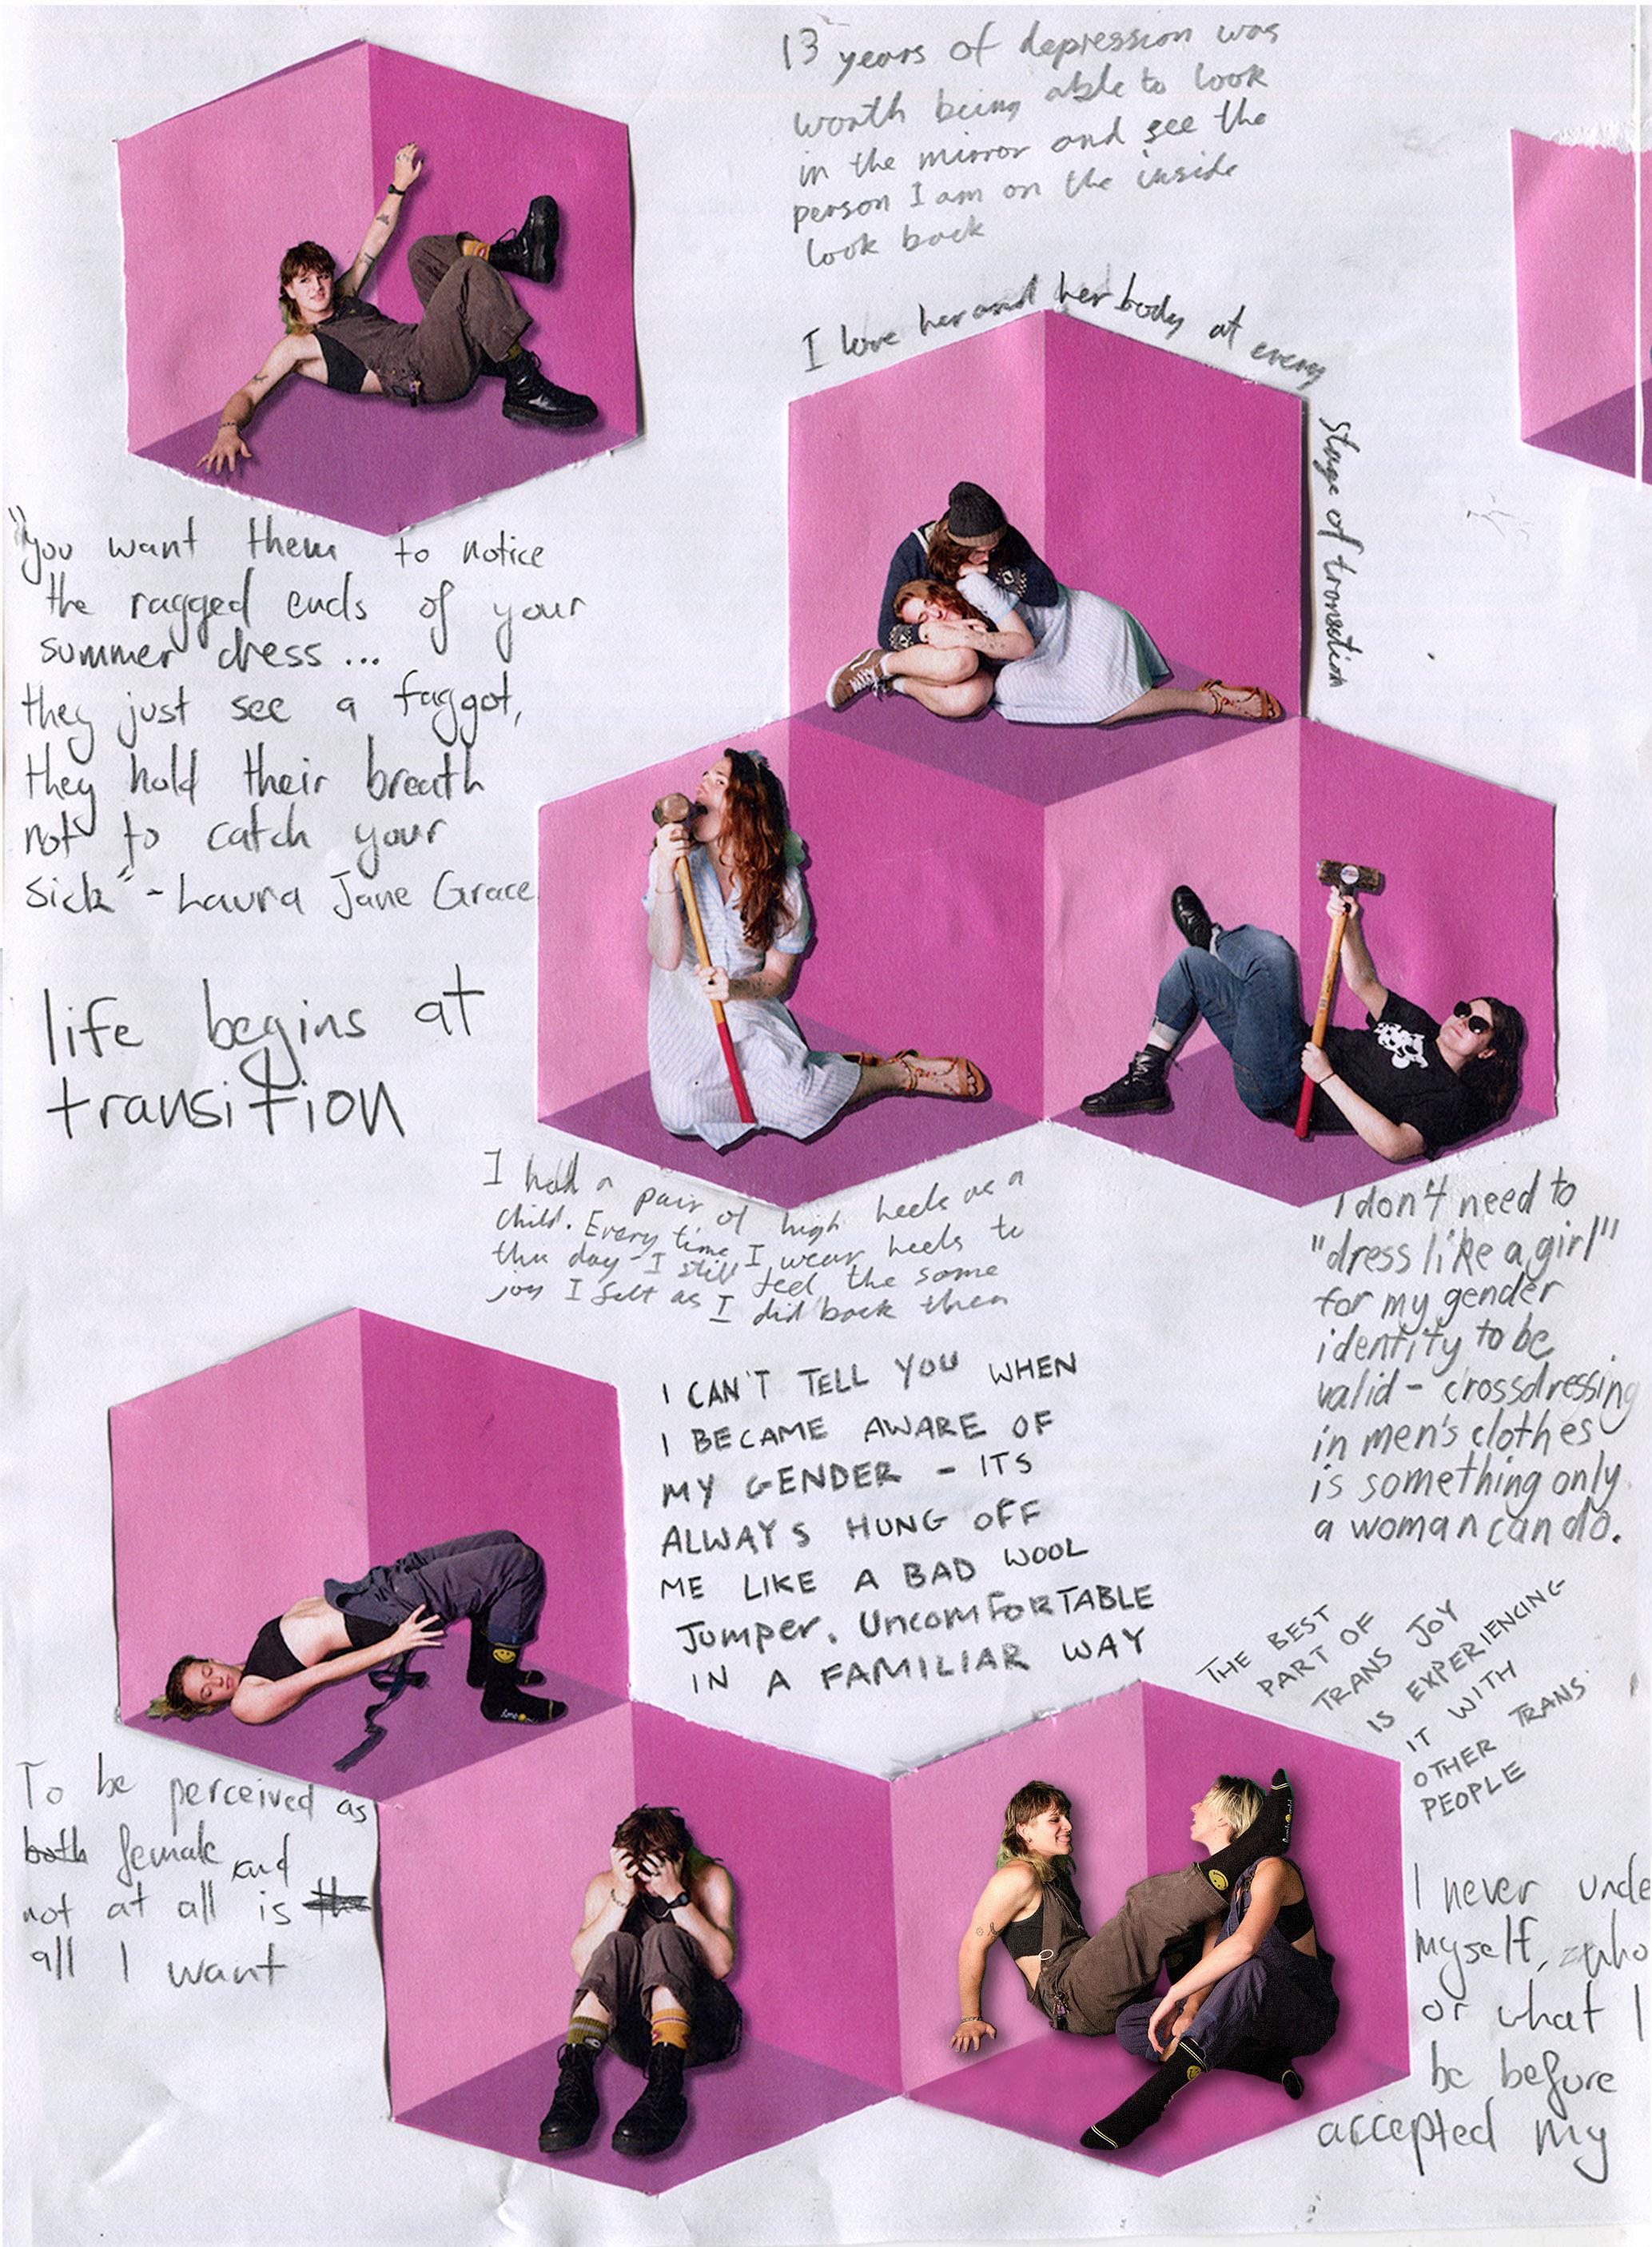 13 years of depression was
worth being able to look
in the mirror and see the
person I am on the inside
look back
I love her and her body at every
stage of transition
"you want them to notice
the ragged ends of your
summer dress...
they just see a faggot,
they hold their breath
not to catch your
sick" - Laura Jane Grace
life begins at
transition
I had a pair of high heels as a
child. Every time I wear heels to
this day - I still feel the same
joy I felt as I did back then
I don't need to
"dress like a girl"
for my gender
identity to be
valid - crossdressing
in men's clothes
is something only
a woman can do.
I CAN'T TELL YOU WHEN
I BECAME AWARE OF
MY GENDER - ITS
ALWAYS HUNG OFF
ME LIKE A BAD WOOL
Jumper. UncomfoRTABLE
IN A FAMILIAR WAY
THE BEST
PART OF
TRANS JOY
IS EXPERIENCING
IT WITH
OTHER TRANS
PEOPLE
To be perceived as
both female and
not at all is the
all I want
I never unde
myself, who
or what I
be before
accepted my